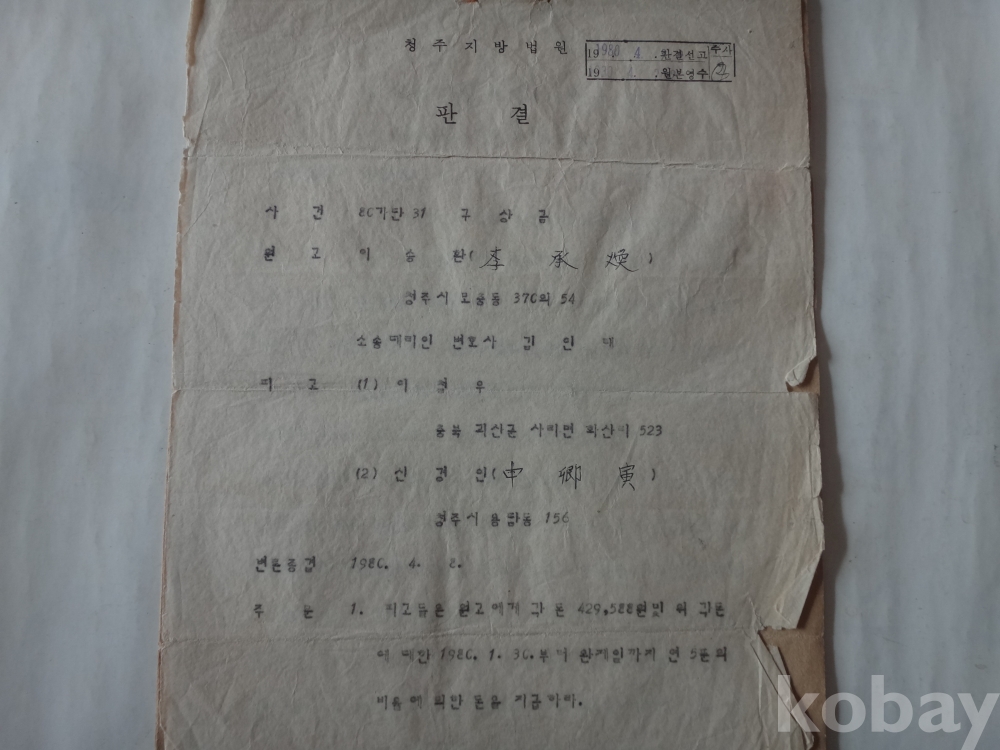 청주지방법원
1980. 4. . 판결선고 주사
19 . . . 원본영수
판결
사건 80가단31 구상금
원고 이승환(李承煥)
청주시 모충동 370의 54
소송대리인 변호사 김인태
피고 (1) 이경우
충북 괴산군 사리면 화산리 523
(2) 신경인(申卿寅)
청주시 용암동 156
변론종결 1980. 4. 8.
주문 1. 피고들은 원고에게 각 돈 429,588원 및 위 각 돈
에 대한 1980. 1. 30.부터 완제일까지 연 5푼의
비율에 의한 돈을 지급하라.
kobay